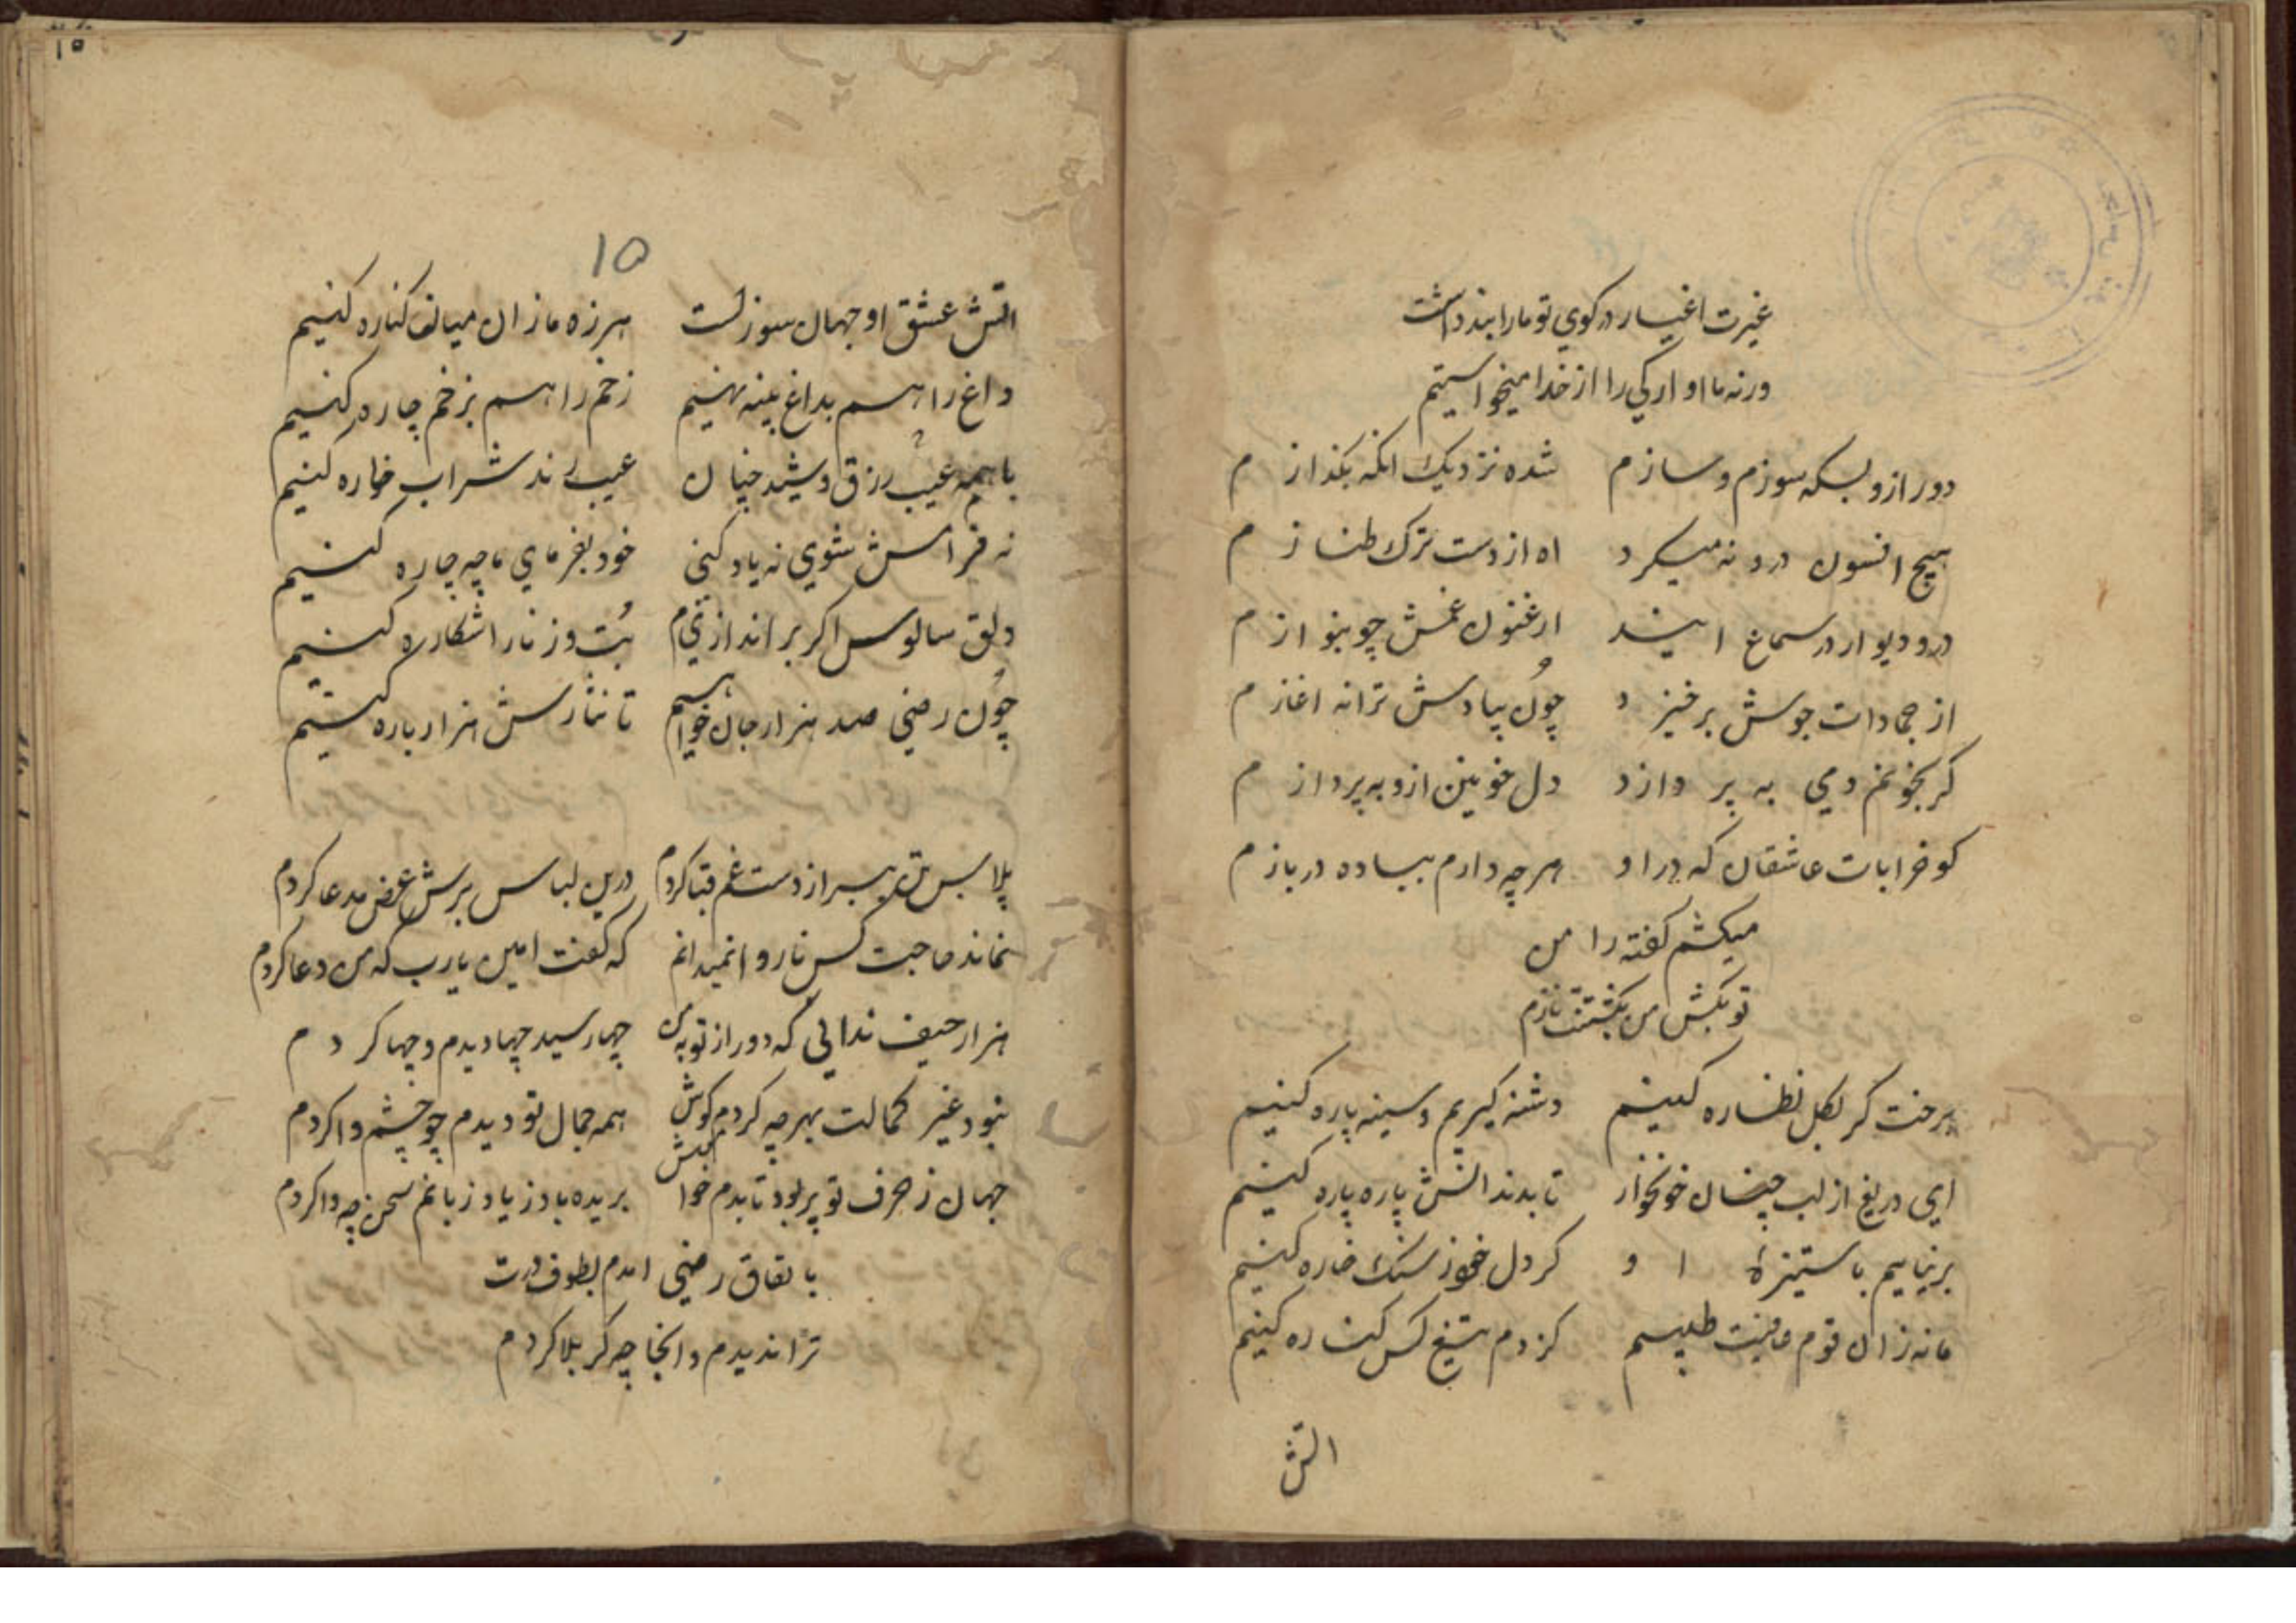 غیرت اغیار در کوی تو ما را بند داشت
ورنه ما اوارکی را از خدا میخواستیم
دور ازو بسکه سوزم و سازم شده نزدیک انکه بکدازم
هیچ افسون درو نه میکرد اه از دست ترک طنازم
در و دیوار در سماع ایند ارغنون غمش چو بنوازم
از جمادات جوش برخیزد چون بیادش ترانه اغازم
کر بخونم دمی به پردازد دل خونین ازو به پردازم
کو خرابات عاشقان که در او هر چه دارم بباده در بازم
میکشم کفته را من
تو بکش من بکشتنت نازم
برخت کر بکل نظاره کنیم دشنه کیریم و سینه پاره کنیم
ای دریغ از لب چنان خونخوار تا بدندانش پاره پاره کنیم
برنیاییم با ستیزهٔ او کر دل خود ز سنک خاره کنیم
ما نه زان قوم عافیت طلبیم کز دم تیغ کس کناره کنیم
اتش
۱۵
۱۵
اتش عشق او جهان سوزست هرزه ما زان میان کناره کنیم
داغ را هم بداغ پنبه نهیم زخم را هم بزخم چاره کنیم
با همه عیب رزق و شید خیان عیب رند شراب خواره کنیم
نه فرامش شوی نه یاد کنی خود بفرمای ما چه چاره کنیم
دلق سالوس اکر براندازیم بت و زنار اشکاره کنیم
چون رضی صد هزار جان خواهیم تا نثارش هزار باره کنیم
پلاس تن بسر از دست غم قبا کردم درین لباس برش عرض مدعا کردم
نماند حاجت کس ناروا نمیدانم که کفت امین یارب که من دعا کردم
هزار حیف ندانی که دور از تو بمن چها رسید چها دیدم و چها کردم
نبود غیر کمالت بهر چه کردم کوش همه جمال تو دیدم چو چشم وا کردم
جهان ز حرف تو پر بود تا بدم خواهش بریده باد ز یاد زبانم سخن چه وا کردم
باتفاق رضی امدم بطوف درت
ترا ندیدم و انجا چه کربلا کردم